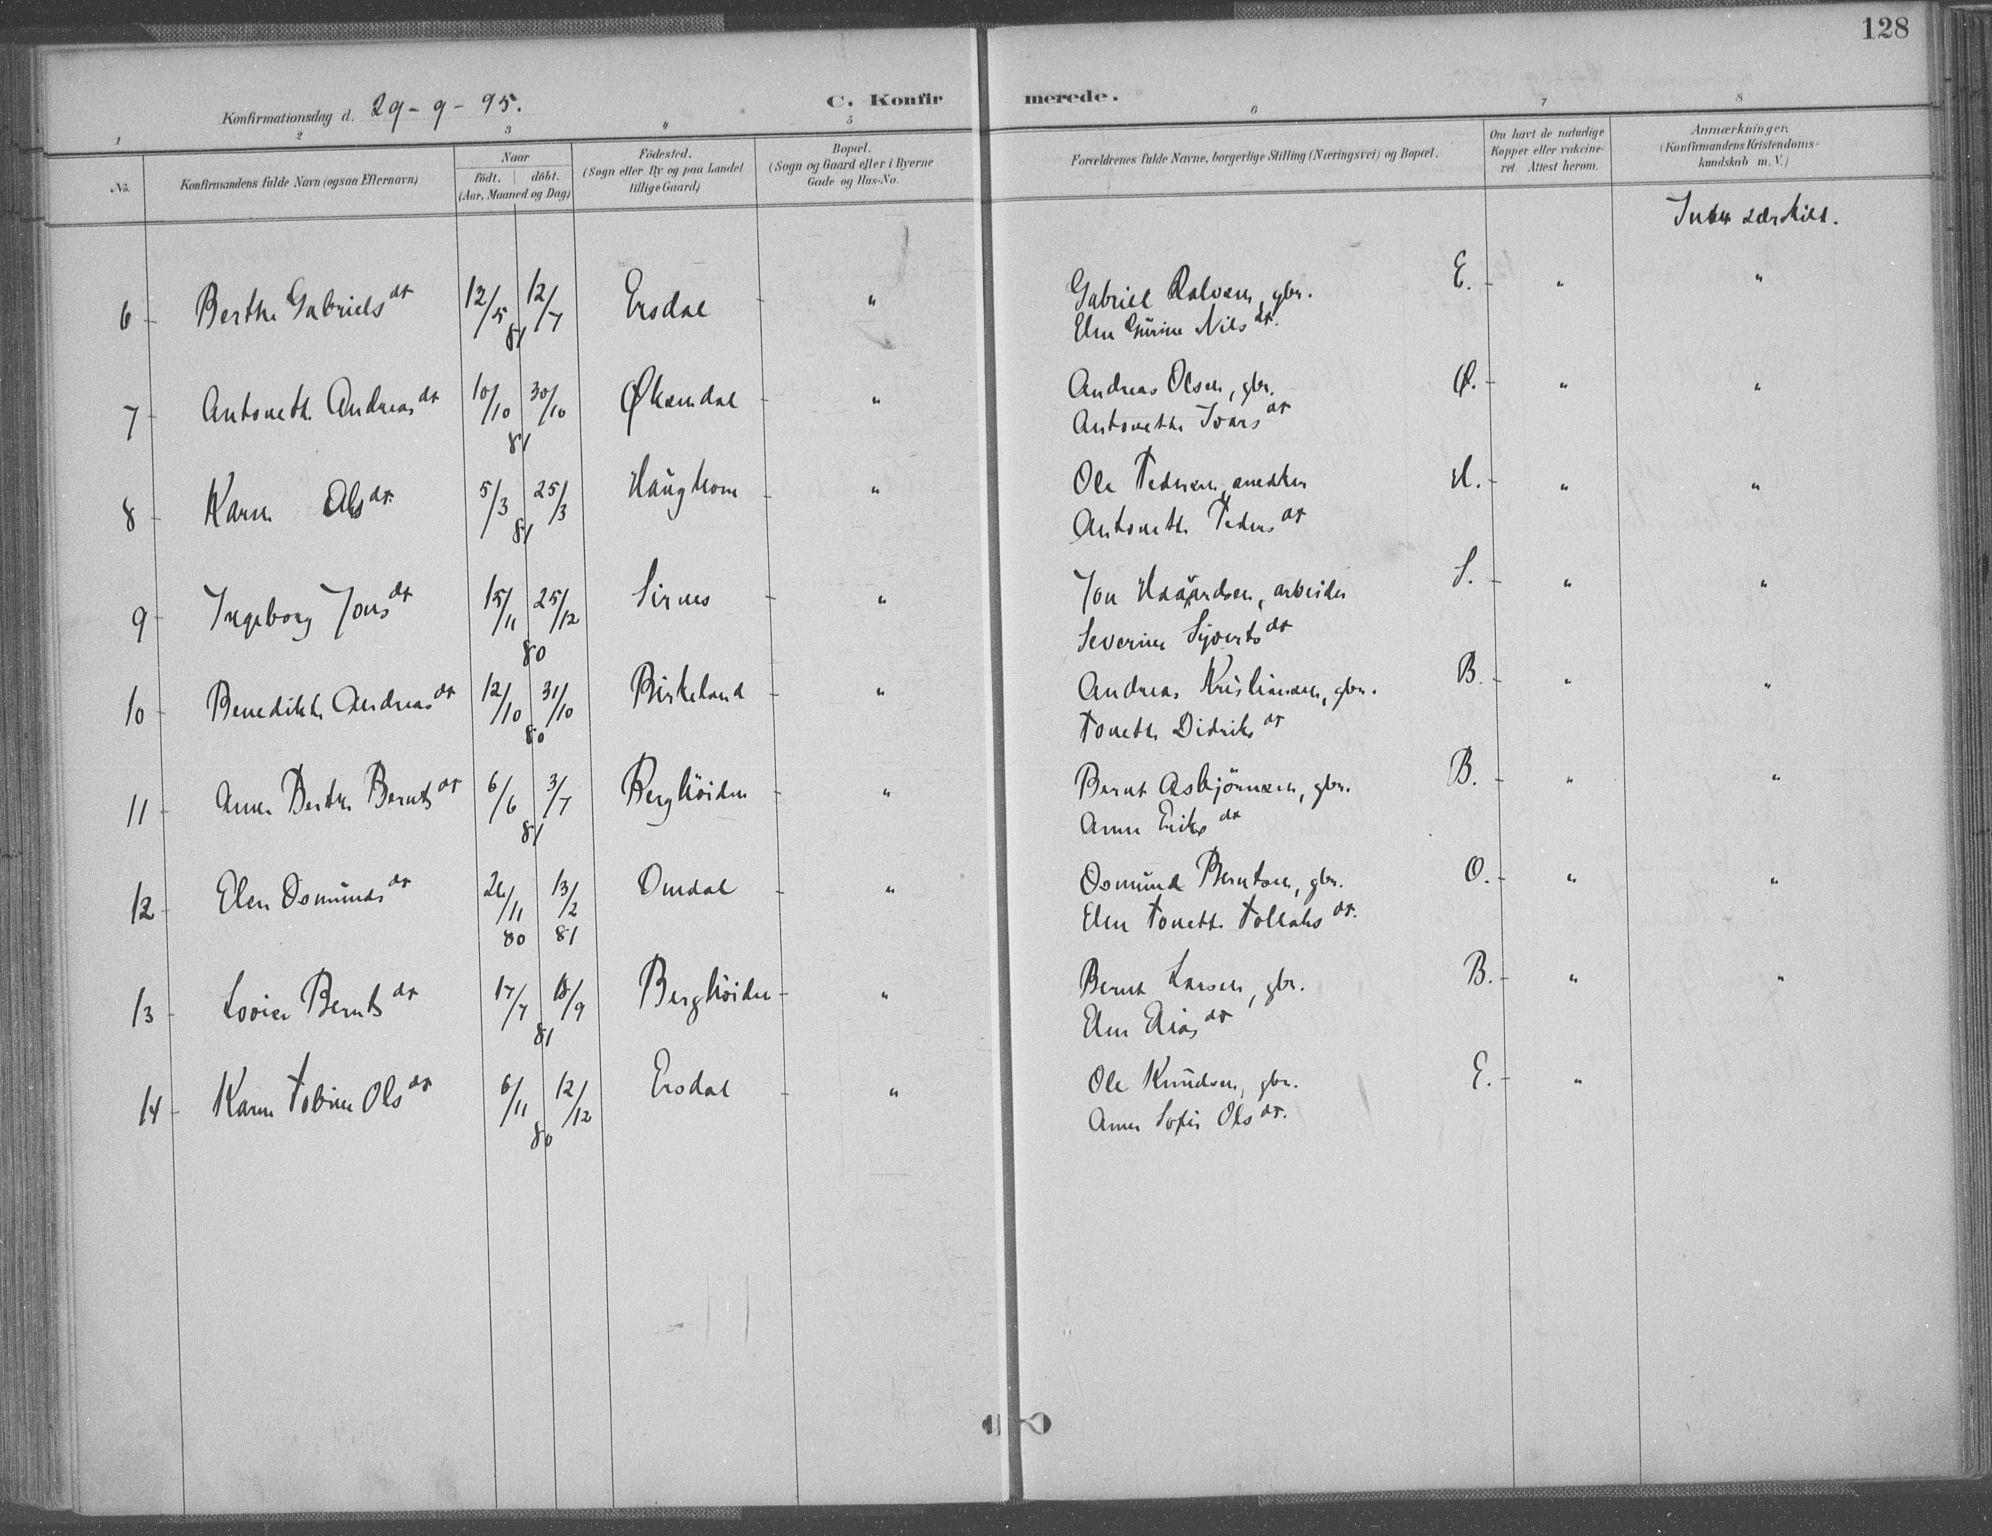 128
Konfirmationsdag d. 29-9-95. C. Konfirmerede.
1 2 3 4 5 6 7 8
No.
Konfirmandens fulde Navn (ogsaa Efternavn)
Naar
födt. döbt.
(Aar, Maaned og Dag)
Födested.
(Sogn eller By og paa Landet
tillige Gaard)
Bopæl.
(Sogn og Gaard eller i Byerne
Gade og Hus-No.
Forældrenes fulde Navne, borgerlige Stilling (Næringsvei) og Bopæl.
Om havt de naturlige
Kopper eller vakcine-
ret. Attest herom.
Anmærkninger.
(Konfirmandens Kristendoms-
kundskab m. V.)
Intet særskilt.
6 Berthe Gabriels dt 12/5 12/7 81 Ersdal " Gabriel Salvesen, gbr. E. " "
Elen Gurine Nils dt.
7 Antonette Andreas dt 10/10 30/10 81 Økendal " Andreas Olsen, gbr. Ø. " "
Antonette Ivars dt
8 Karen Ols dt. 5/3 25/3 81 Haughom " Ole Pedersen, snedker H. " "
Antonette Peders dt
9 Ingeborg Jons dt 15/11 25/12 80 Sirnes " Jon Haaardsen, arbeider S. " "
Severine Sjverts dt
10 Benedikte Andreas dt 12/10 31/10 80 Birkeland " Andreas Kristiansen, gbr. B. " "
Tonette Didriks dt
11 Anne Berthe Bernts dt 6/6 3/7 81 Berghöiden " Bernt Asbjörnsen, gbr. B. " "
Anne Eriks dt
12 Elen Osmunds dt 26/11 80 13/2 81 Omdal " Osmund Berntsen, gbr. O. " "
Elen Tonette Tollaks dt.
13 Lovise Bernts dt 17/7 18/9 81 Berghöiden " Bernt Larsen, gbr. B. " "
Elen Elias dt
14 Karen Tobine Ols dt 6/11 12/12 80 Ersdal " Ole Knudsen, gbr. E. "
Anne Sofie Ols dt.